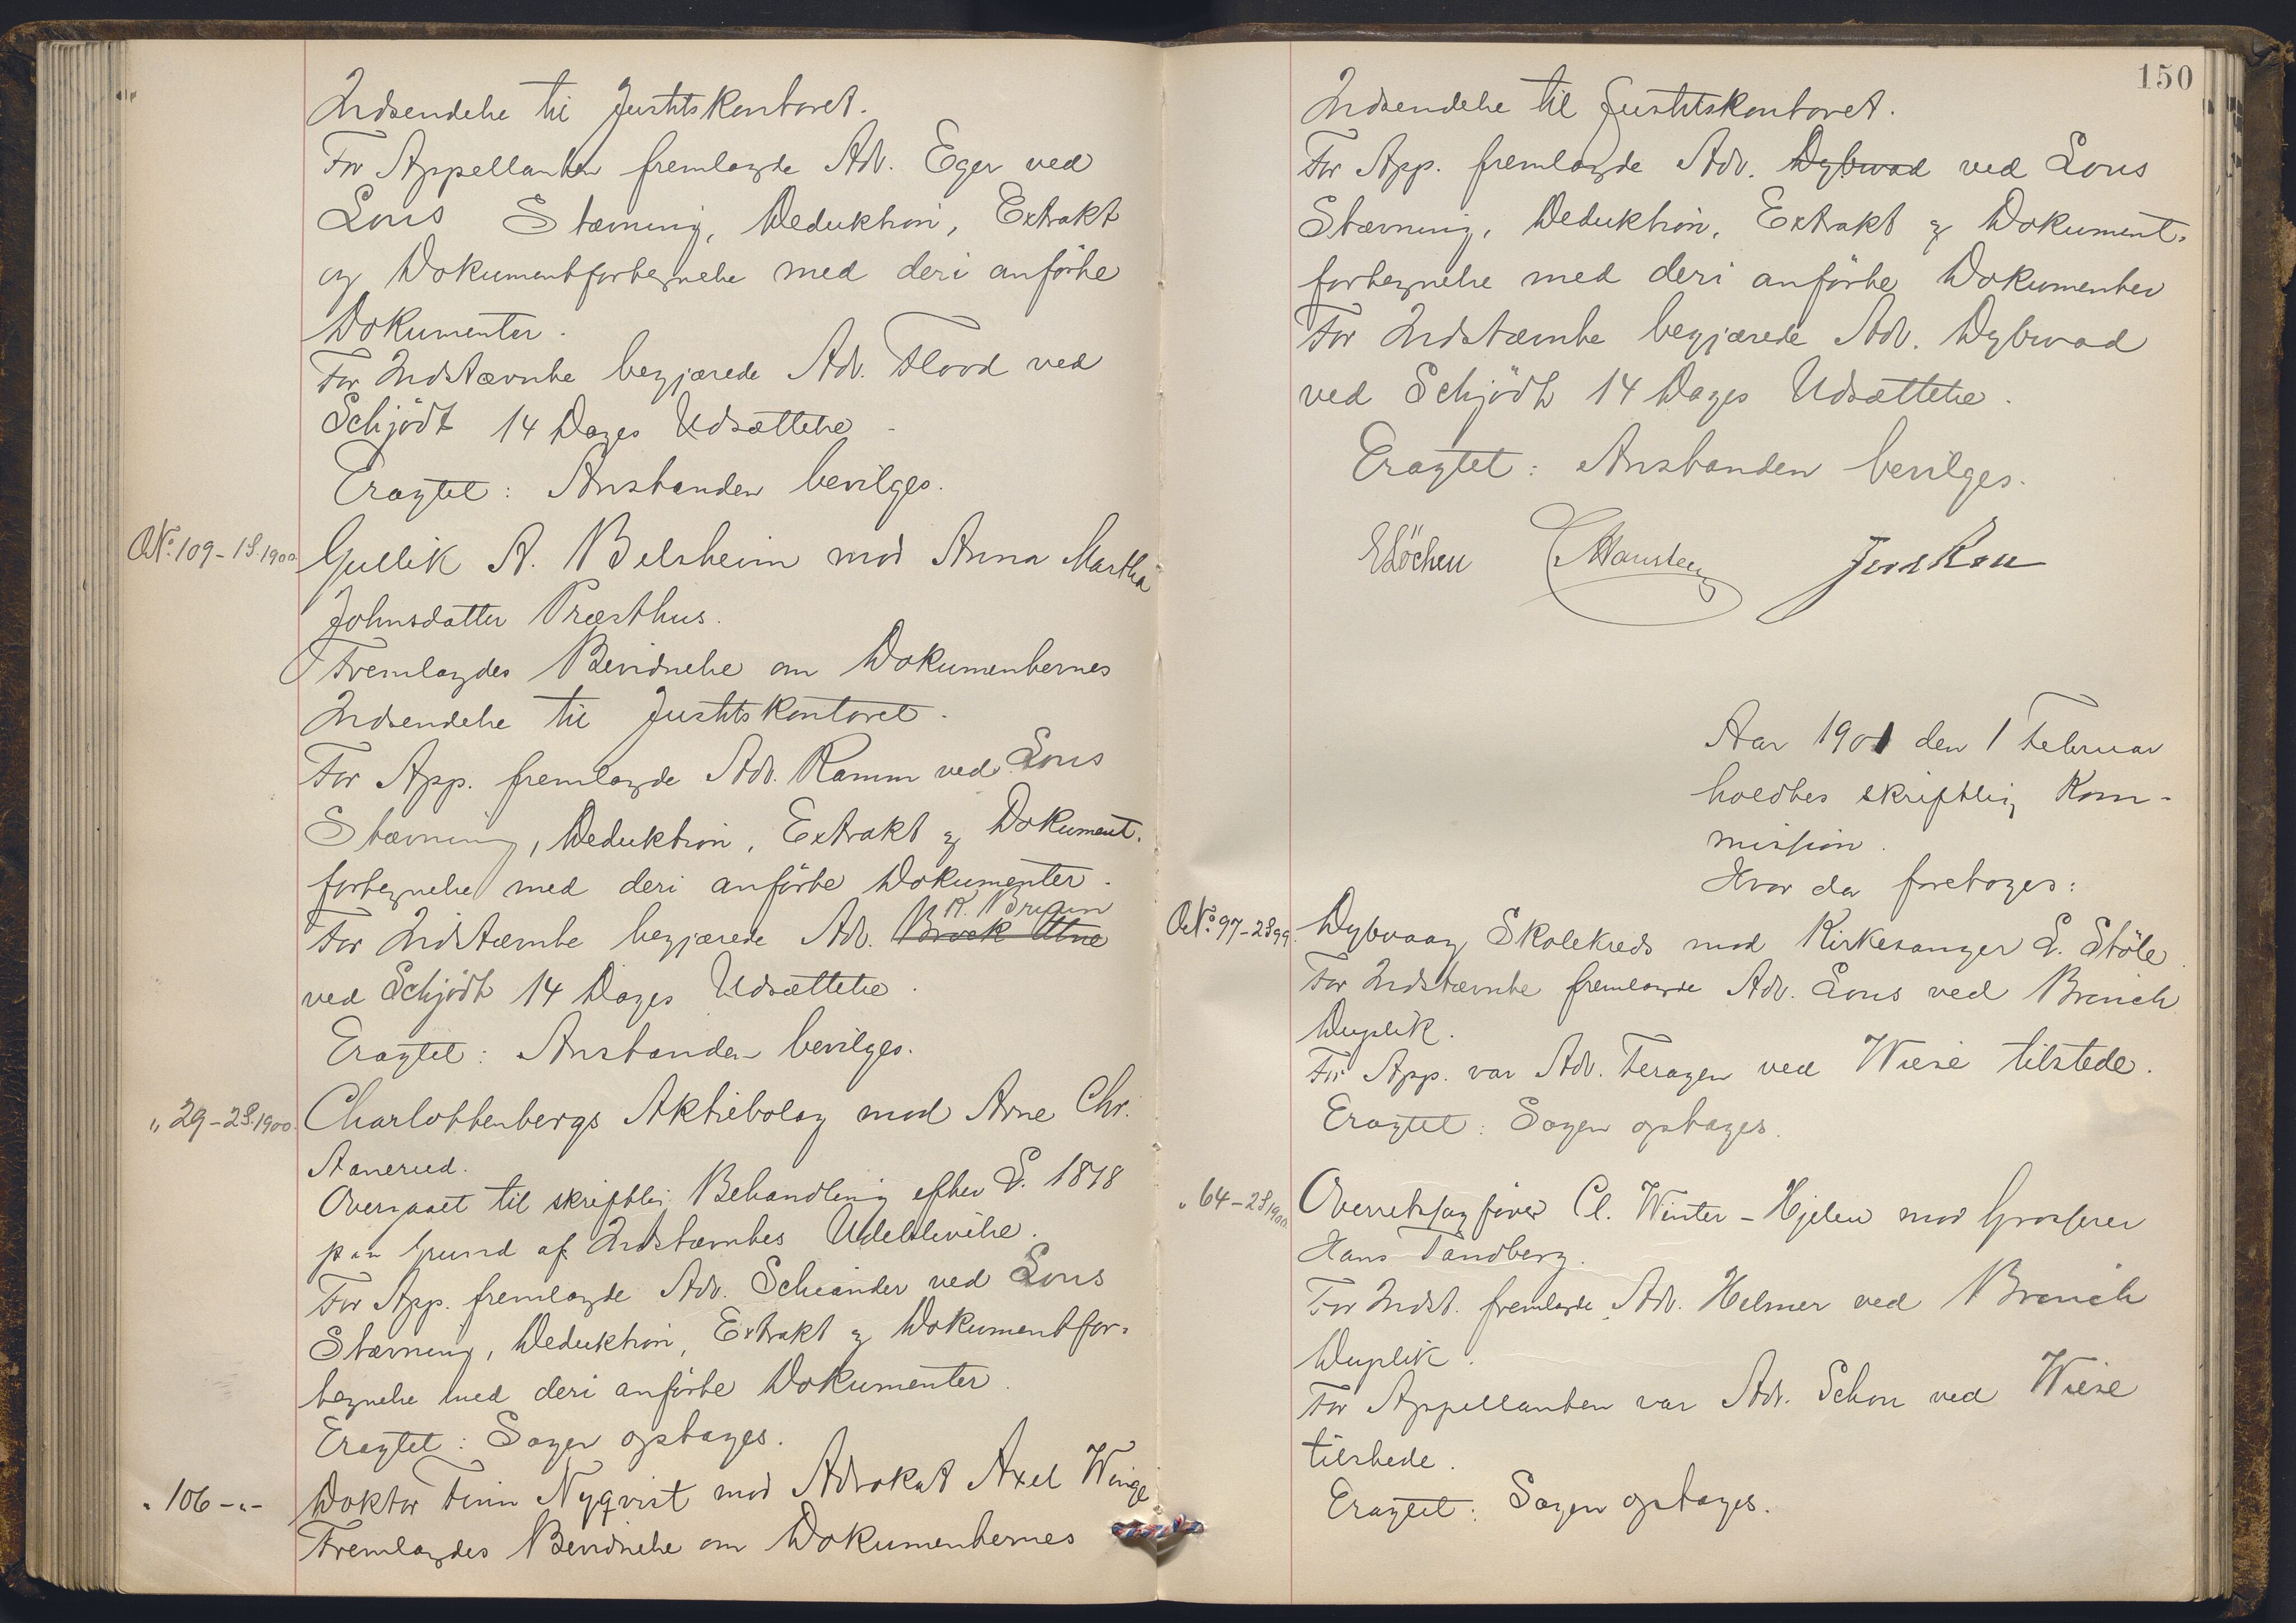 Indsendelse til Justitskontoret.
For Appellanten fremlagde Adv. Eger ved
Lous Stævning, Deduktion, Extrakt
og Dokumentfortegnelse med deri anförte
Dokumenter.
For Indstævnte begjærede Adv. Flood ved
Schjödt 14 Dages Udsættelse.
Eragtet: Anstanden bevilges.
No. 109 - 1S. 1900. Gullik A. Belsheim mod Anna Martha
Johnsdatter Præsthus.
Fremlagdes Bevidnelse om Dokumenternes
Indsendelse til Justitskontoret.
For App. fremlagde Adv. Ramm ved Lous
Stævning, Deduktion, Extrakt og Dokument-
fortegnelse med deri anförte Dokumenter.
K. Bruun
For Indstævnte begjærede Adv. Brock Utne
ved Schjödt 14 Dages Udsættelse.
Eragtet: Anstanden bevilges.
" 29 - 2S. 1900. Charlottenbergs Aktiebolag mod Arne Chr.
Aanerud.
Overgaaet til skriftlig Behandling efter L. 1878
paa Grund af Indstævntes Udeblivelse.
For App. fremlagde Adv. Scheander ved Lous
Stævning, Deduktion, Extrakt og Dokumentfor-
tegnelse med deri anförte Dokumenter.
Eragtet: Sagen optages.
" 106 - " - Doktor Finn Nyqvist mod Advokat Axel Winge
Fremlagdes Bevidnelse om Dokumenternes
150
Indsendelse til Justitskontoret.
For App. fremlagde Adv. Dybwad ved Lous
Stævning, Deduktion, Extrakt og Dokument-
fortegnelse med deri anförte Dokumenter
For Indstævnte begjærede Adv. Dybwad
ved Schjödt 14 Dages Udsættelse.
Eragtet: Anstanden bevilges.
E Löchen Hansteen
Aar 1901 den 1 Februar
holdtes skriftlig Kom-
mission.
Hvor da foretoges:
No. 97 - 2S 99. Dybvaag Skolekreds mod Kirkesanger L. Stöle.
For Indstævnte fremlagde Adv. Lous ved Brinch
Duplik.
For App. var Adv. Feragen ved Wiese tilstede.
Eragtet: Sagen optages.
" 64 - 2S 1900. Overretssagförer Cl. Winter-Hjelm mod Grosserer
Hans Tandberg.
For Indst. fremlagde Adv. Helmer ved Brinch
Duplik.
For Appellanten var Adv. Schou ved Wiese
tilstede.
Eragtet: Sagen optages.